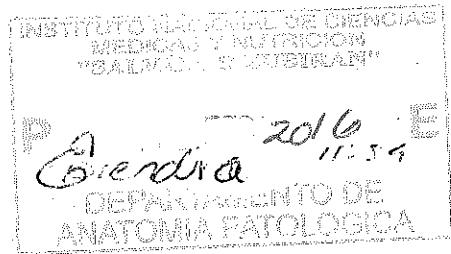 INSTITUTO NACIONAL DE CIENCIAS
MEDICAS Y NUTRICION
"SALVADOR ZUBIRAN"
2016
11:54
DEPARTAMENTO DE
ANATOMIA PATOLOGICA